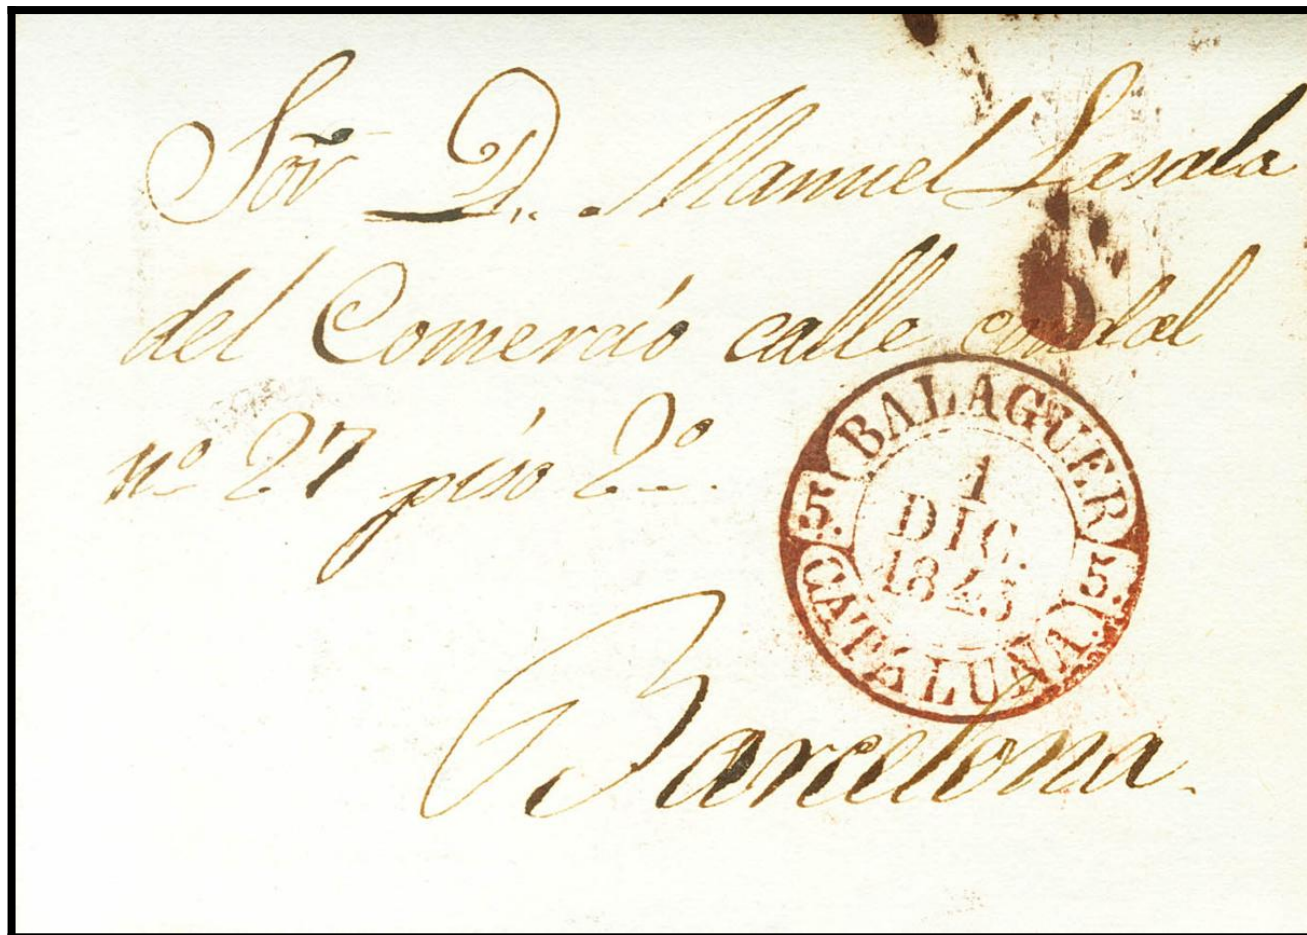 Sōr D. Manuel Lasala
del Comercio calle condal
nº 27 piso 2º.
BALAGUER
5 5
1
DIC.
1845
CATALUÑA
Barcelona.